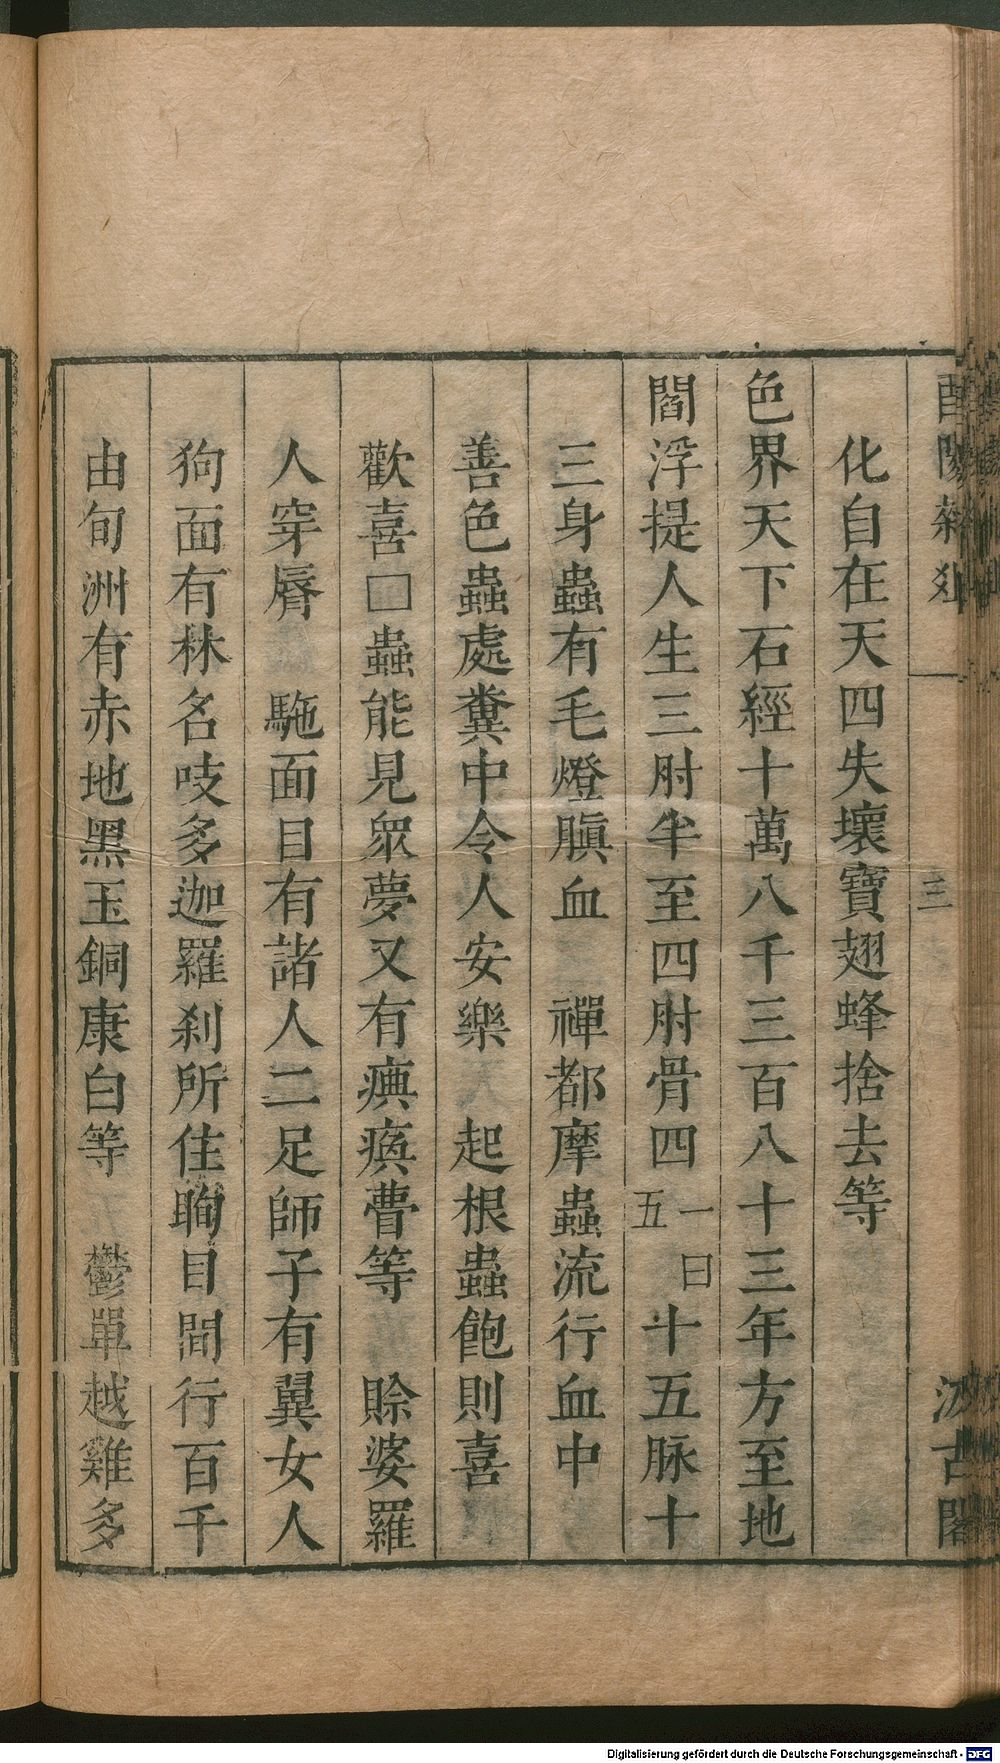 化自在天四失壞寶翅蜂捨去等
色界天下石經十萬八千三百八十三年方至地
閻浮提人生三肘半至四肘骨四一曰五十五脉十
三身蟲有毛燈瞋血　禪都摩蟲流行血中
善色蟲處糞中令人安樂　起根蟲飽則喜
歡喜□蟲能見眾夢又有瘨瘓瞢等　賒婆羅
人穿脣　駞面目有諸人二足師子有翼女人
狗面有林名吱多迦羅刹所住眴目間行百千
由旬洲有赤地黑玉銅康白等　鬱單越雞多
三
汲古閣
Digitalisierung gefördert durch die Deutsche Forschungsgemeinschaft - DFG